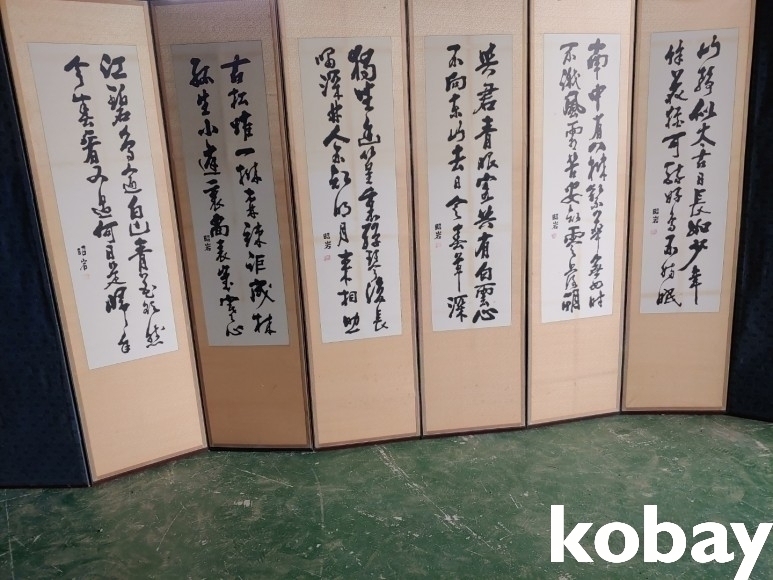 山靜似太古日長如少年
餘花猶可醉好鳥不妨眠
昭岩
南中有八樹繁華無四時
不識風霜苦安知零落期
昭岩
與君青眼客共有白雲心
不向東山去日令春草深
昭岩
獨坐幽篁裏彈琴復長
嘯深林人不知明月來相照
昭岩
古松惟一樹森竦詎成林
生小塵尚表歲寒心
昭岩
江碧鳥逾白山青花欲然
今春看又過何日是歸年
昭岩
kobay